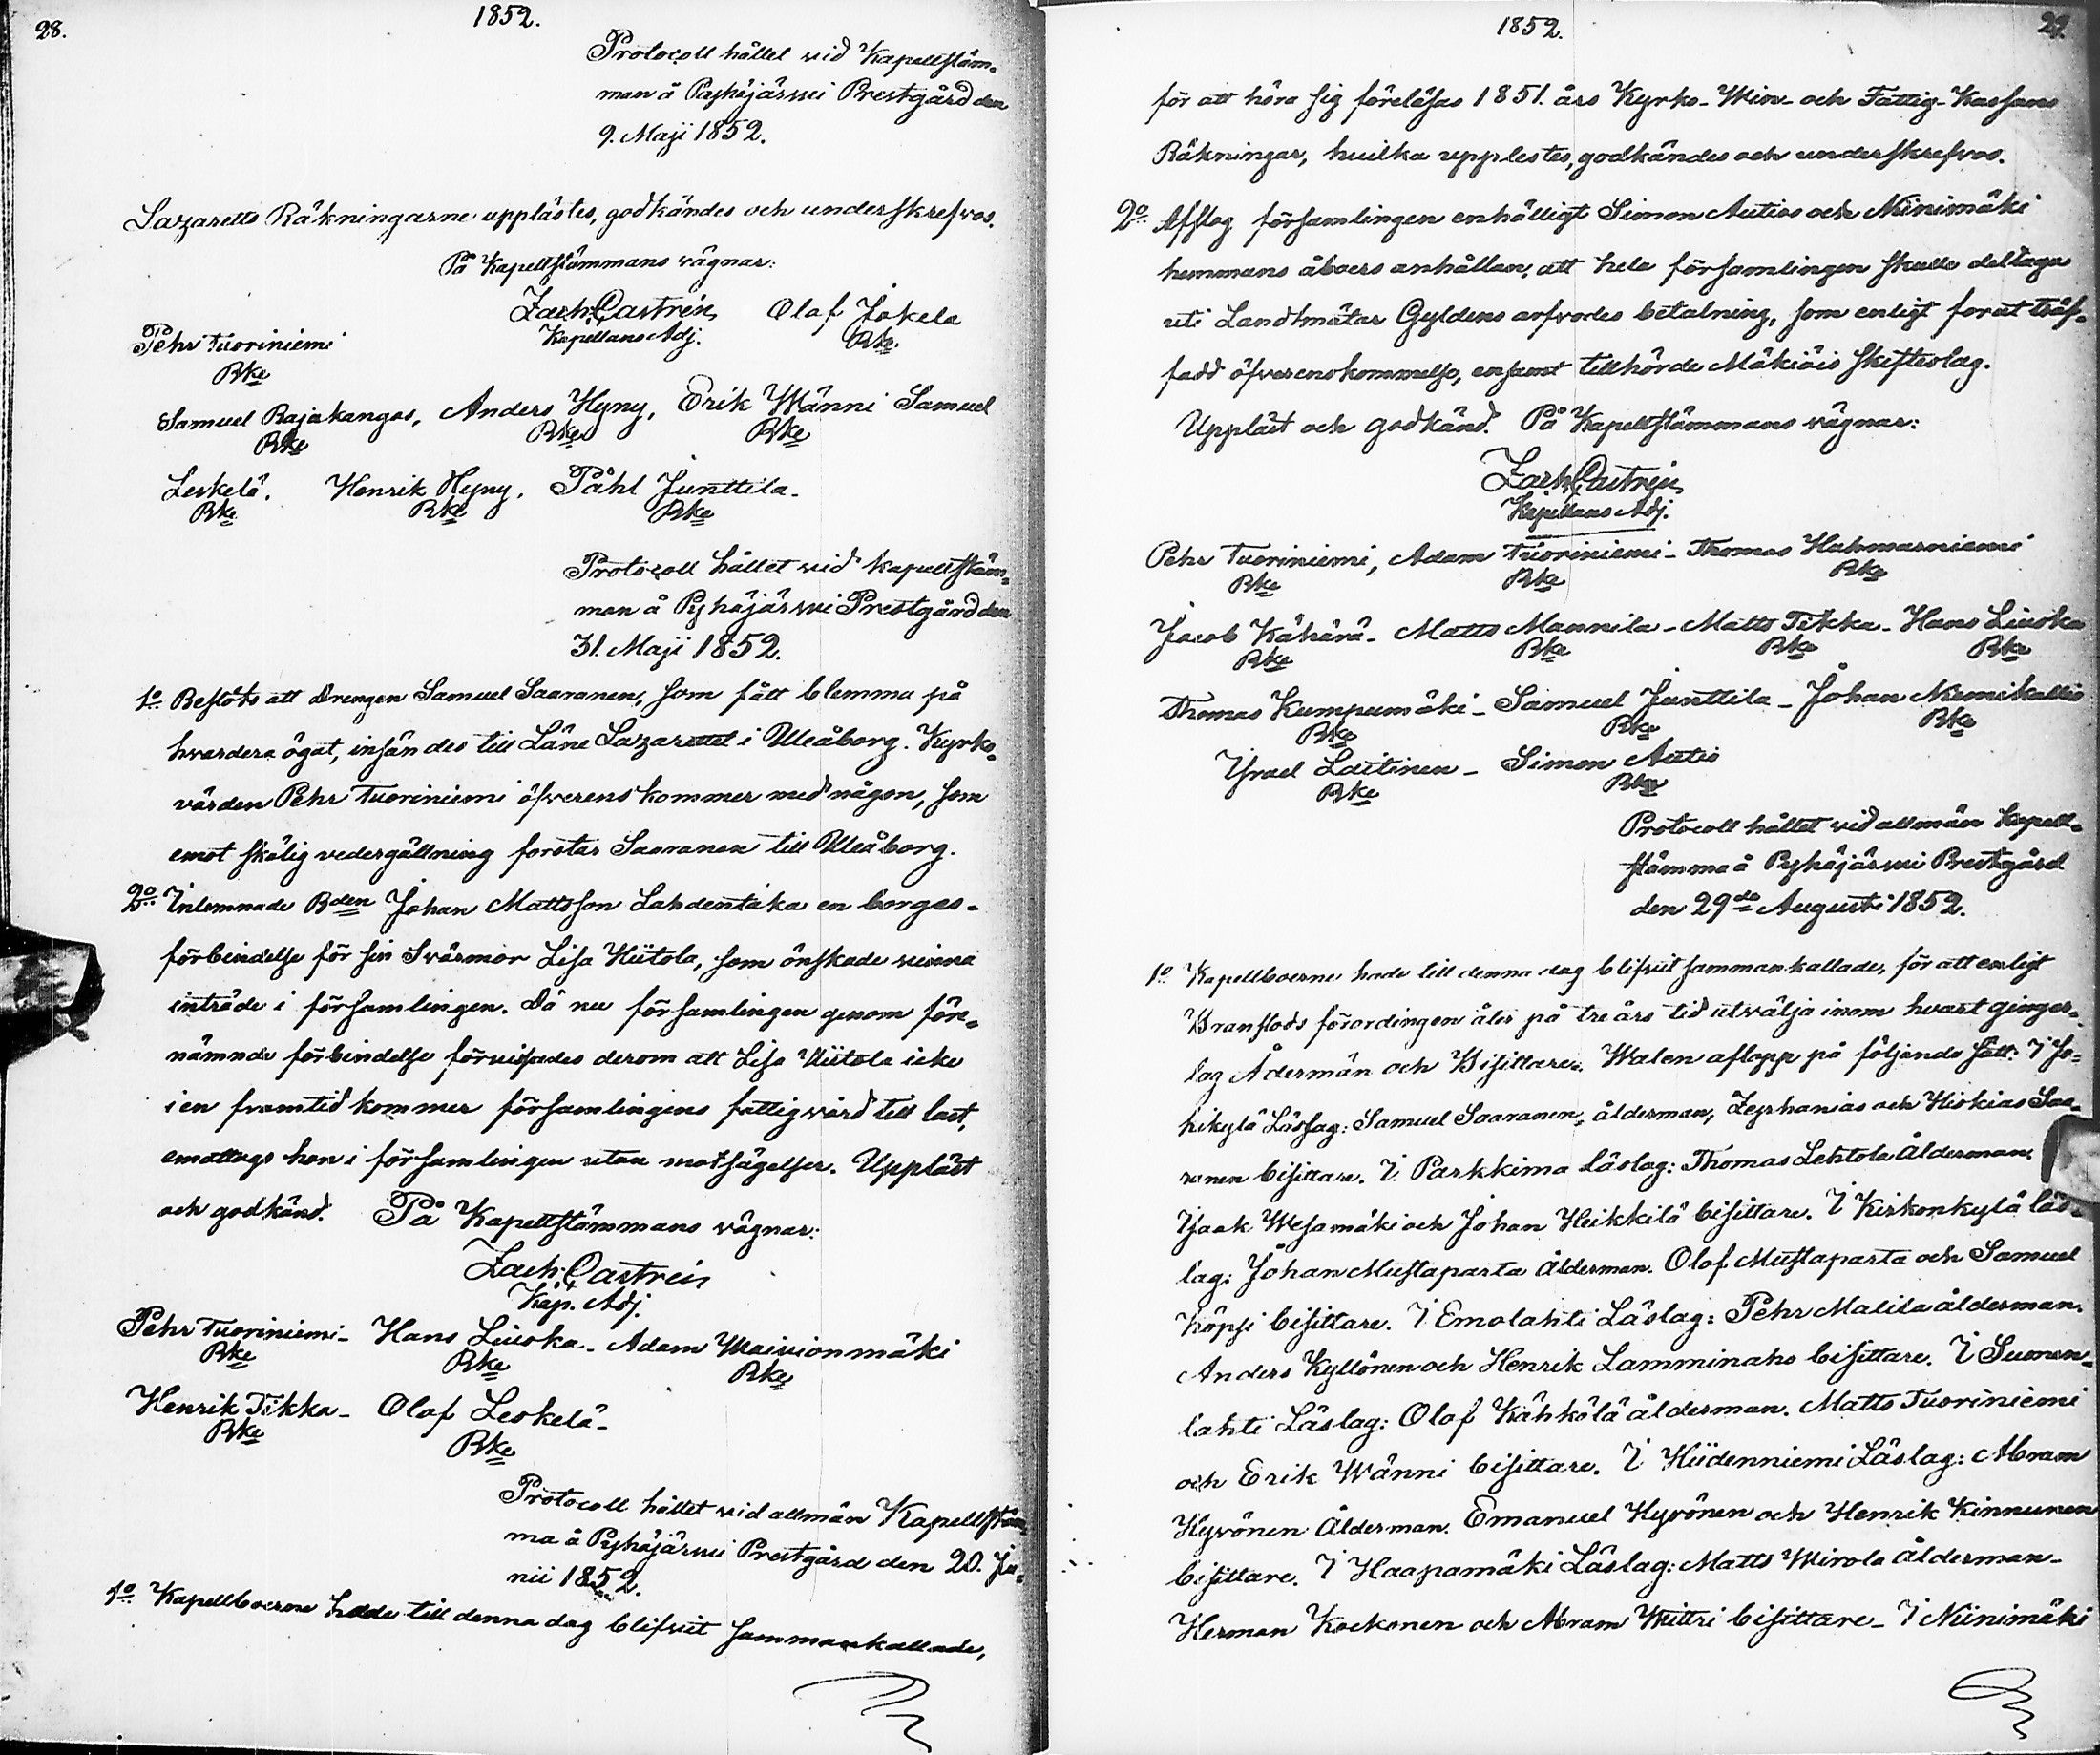 28.
1852.
Protocoll hållet vid Kapellstäm-
man å Pyhäjärwi Prestgård den
9. Maji 1852.
Lazaretts Räkningarne upplästes, godkändes och underskrefvos.
På Kapellstämmans vägnar:
Zach: Castrén Olof Jokela
Pehr Tuoriniemi Kapellans Adj. Bke.
Bke
Samuel Rajakangas, Anders Hyny, Erik Wänni Samuel
Bke Bke Bke
Leskelä. Henrik Hyny, Påhl Junttila.
Bke Bke Bke
Protocoll hållet vid kapellstäm-
man å Pyhäjärwi Prestgård den
31. Maji 1852.
1o Beslöts att drengen Samuel Saaranen, som fått blemma på
hvardera ögat, insändes till Läns Lazarettet i Uleåborg. Kyrko-
värden Pehr Tuoriniemi öfverenskommer med någon, som
emot skälig vedergällning forslar Saaranen till Uleåborg.
2o Inlemnade Bden Johan Mattsson Lahdentaka en borges-
förbindelse för sin Svärmor Lisa Hiitola, som önskade vinna
inträde i församlingen. Då nu församlingen genom före-
nämnde förbindelse förvissades derom att Lisa Hiitola icke
i en framtid kommer församlingens fattigvård till last,
emottogs hon i församlingen utan motsägelser. Uppläst
och godkänd. På Kapellstämmans vägnar:
Zach: Castrén
Kap. Adj.
Pehr Tuoriniemi - Hans Liuska - Adam Maivionmäki
Bke Bke Bke
Henrik Tikka - Olof Leskelä -
Bke Bke
Protocoll hållet vid allmän Kapellstäm-
ma å Pyhäjärwi Prestgård den 20. Ju-
nii 1852.
1o Kapellboerne hade till denna dag blifvit sammankallade,
1852.
29.
för att höra sig föreläsas 1851. års Kyrko- Win- och Fattig-Kassans
Räkningar, hvilka upplestes, godkändes och underskrefvos.
2o Afslog församlingen enhälligt Simon Autios och Niinimäki
hemmans åboers anhållan, att hela församlingen skulle deltaga
uti Landtmätar Gyldens arfvodes betalning, som enligt forut träf-
fadd öfverenskommelse, ensamt tillhörde Mäkiöis skifteslag.
Uppläst och godkänd. På Kapellstämmans vägnar:
Zach: Castrén
Kapellans Adj.
Pehr Tuoriniemi, Adam Tuoriniemi - Thomas Hahmarniemi
Bke Bke Bke
Jacob Kähärä - Matts Mannila - Matts Tikka - Hans Liuska
Bke Bke Bke Bke
Thomas Kumpumäki - Samuel Junttila - Johan Niemikallio
Bke Bke Bke
Israel Laitinen - Simon Autio
Bke Bke
Protocoll hållet vid allmän Kapell-
stämma å Pyhäjärwi Prestgård
den 29de Augusti 1852.
1o Kapellboerne hade till denna dag blifvit sammankallade, för att enligt
Branstods förordingen åter på tre års tid utvälja inom hvart gingers-
lag Ådermän och Bisittare. Walen aflopp på följande sätt: I Jo-
kikylä Läslag: Samuel Saaranen, ålderman, Zephanias och Hiskias Saa-
ranen bisittare. I Parkkima läslag: Thomas Lehtola Ålderman.
Isaak Wesamäki och Johan Heikkilä bisittare. I Kirkonkylä läs-
lag: Johan Mustaparta Ålderman. Olof Mustaparta och Samuel
Köpsi bisittare. I Emolahti Läslag: Pehr Malila ålderman.
Anders Kyllönen och Henrik Lamminaho bisittare. I Suonen-
lahti Läslag: Olof Kähkölä ålderman. Matts Tuoriniemi
och Erik Wänni bisittare. I Hiidenniemi Läslag: Abram
Hyvönen Ålderman. Emanuel Hyvönen och Henrik Kinnunen
bisittare. I Haapamäki Läslag: Matts Wirola Ålderman -
Herman Kockonen och Abram Kuittri bisittare - I Niinimäki